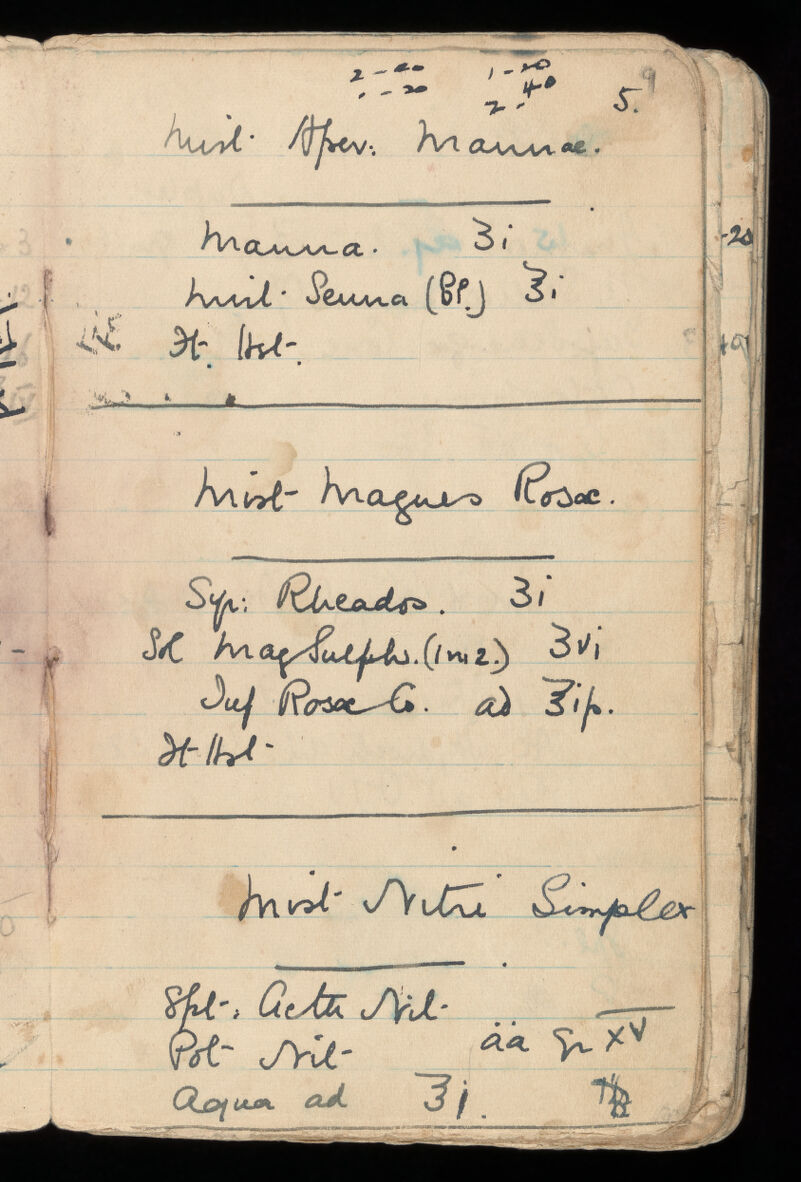 2 - 40 1 - 20 9
- 20 2 - 40 5.
Mist. Aper: Mannae.
Manna. ʒi
Mist. Senna (BP.) ℥i
Ft. Hst.
Mist Magnes Rosae.
Syr: Rheados. ʒi
Sol Mag Sulph. (1 in 2.) ʒvi
Inf Rosae Co. ad ℥iſs.
Ft Hst
Mist Nitri Simplex
Spt: Aeth Nit
Pot Nit āā gr XV
Aqua ad ℥i.
-20